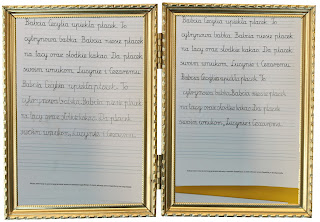 Babcia Cecylia upiekła placek. To
cytrynowa babka. Babcia niesie placek
na tacy oraz słodkie kakao. Da placek
swoim wnukom, Lucynie i Cezaremu.
Babcia Cecylia upiekła placek. To
cytrynowa babka. Babcia niesie placek
na tacy oraz słodkie kakao. Da placek
swoim wnukom, Lucynie i Cezaremu.
Babcia Cecylia upiekła placek. To
cytrynowa babka. Babcia niesie placek
na tacy oraz słodkie kakao. Da placek
swoim wnukom, Lucynie i Cezaremu.
Babcia Cecylia upiekła placek. To
cytrynowa babka. Babcia niesie placek
na tacy oraz słodkie kakao. Da placek
swoim wnukom, Lucynie i Cezaremu.